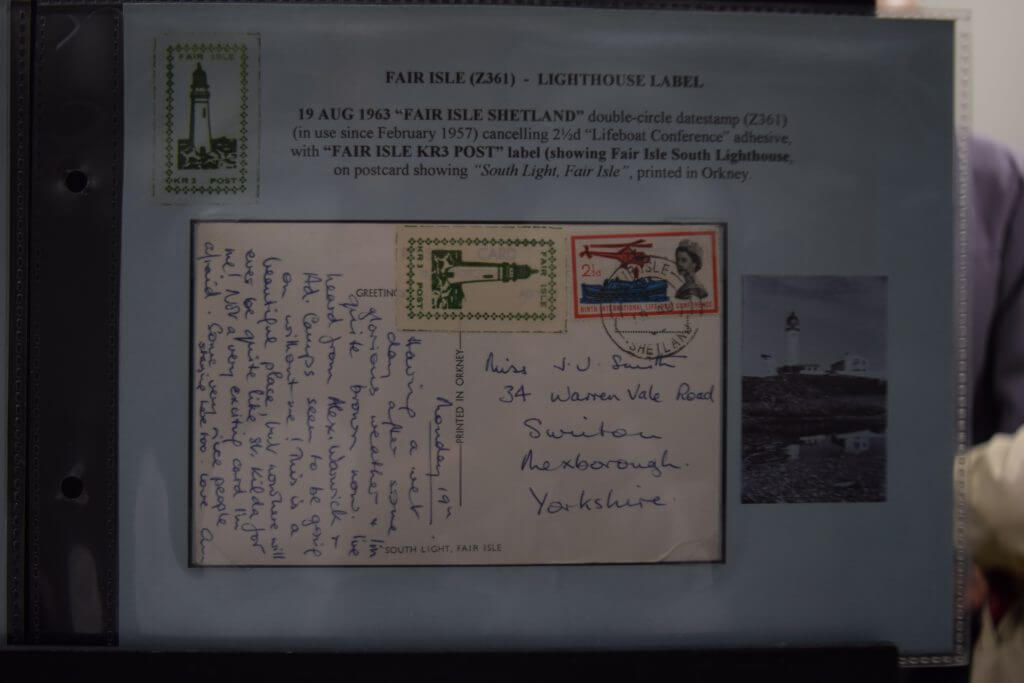 FAIR ISLE
KR3 POST
FAIR ISLE (Z361) - LIGHTHOUSE LABEL
19 AUG 1963 “FAIR ISLE SHETLAND” double-circle datestamp (Z361)
(in use since February 1957) cancelling 2½d “Lifeboat Conference” adhesive,
with “FAIR ISLE KR3 POST” label (showing Fair Isle South Lighthouse,
on postcard showing “South Light, Fair Isle”, printed in Orkney.
KR3 POST
FAIR ISLE
CARD
2½d
NINTH INTERNATIONAL LIFEBOAT CONFERENCE
FAIR ISLE
SHETLAND
GREETINGS
PRINTED IN ORKNEY
Monday 19th
Having a wet
day after some
glorious weather & I'm
quite brown now. I've
heard from Alex. Warwick &
Ad. Camps seem to be going
on without me! This is a
beautiful place, but nowhere will
ever be quite like St. Kilda for
me! Not a very exciting card I'm
afraid. Some very nice people
staying here too. Love
Miss J. J. Smith
34 Warren Vale Road
Swinton
Mexborough.
Yorkshire.
SOUTH LIGHT, FAIR ISLE